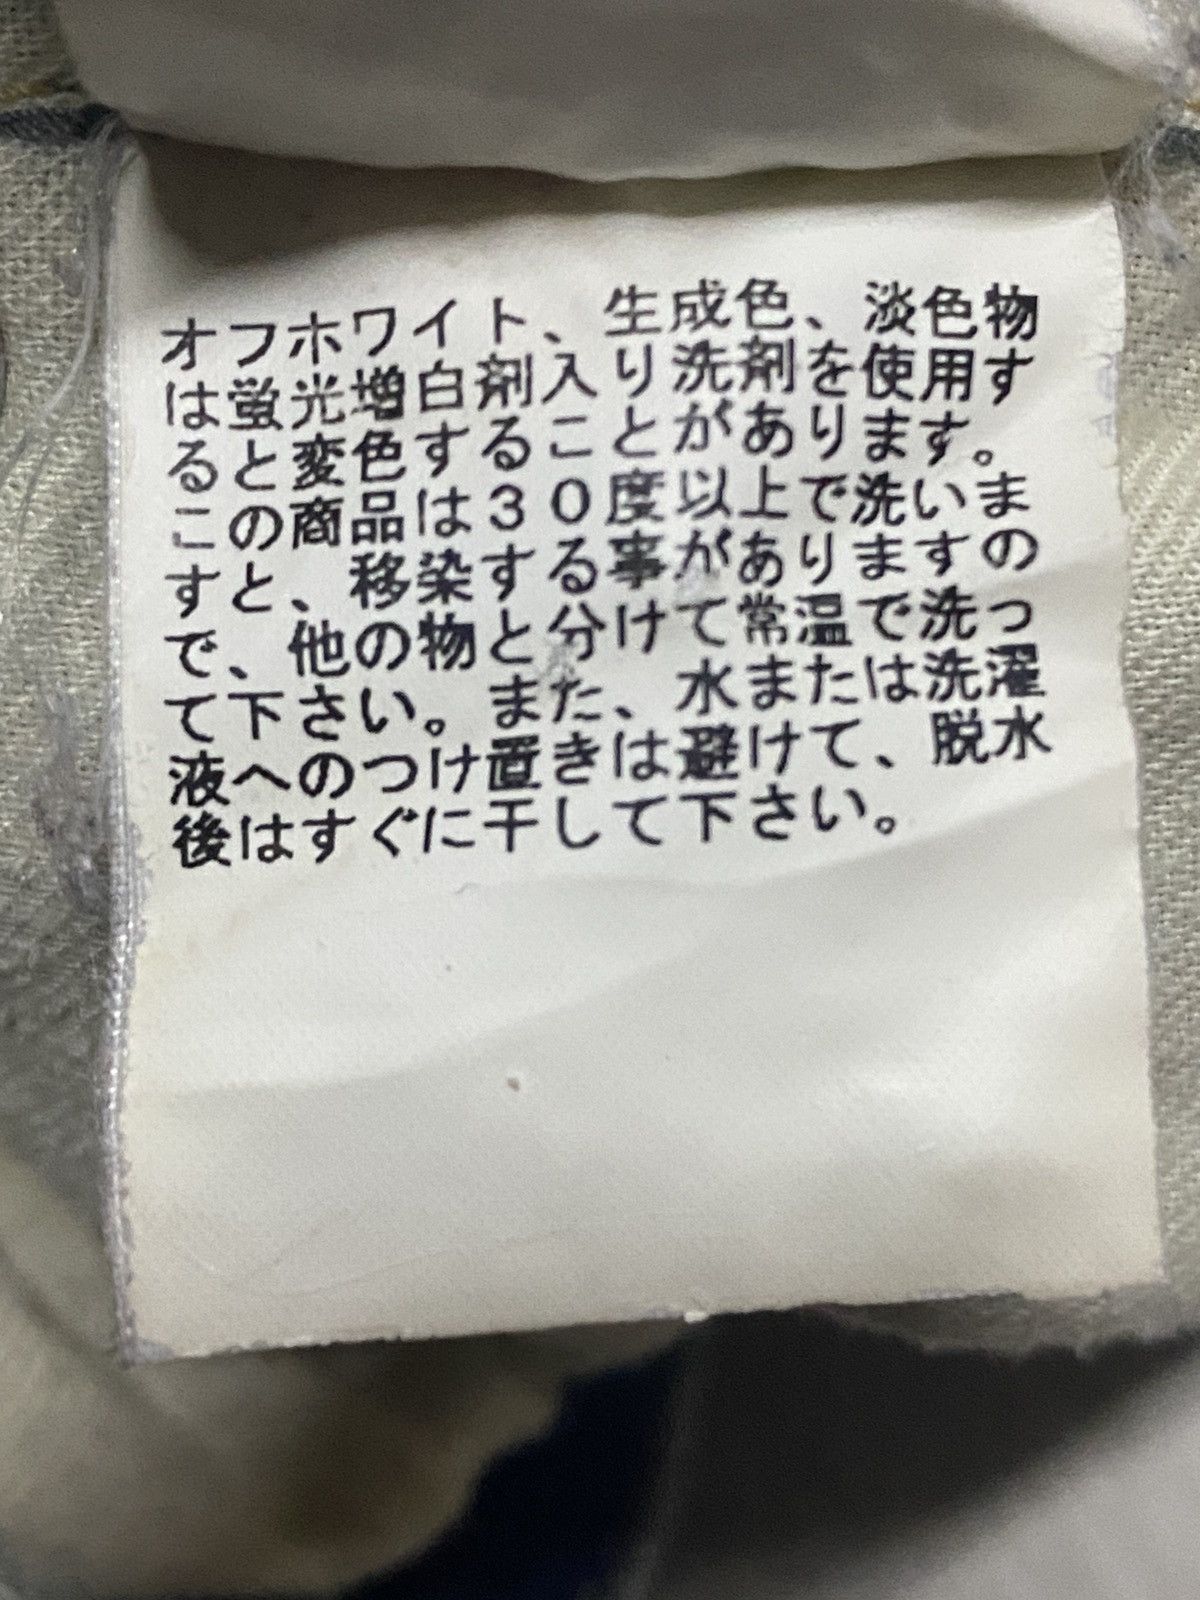 オフホワイト、生成色、淡色物
は蛍光増白剤入り洗剤を使用す
ると変色することがあります。
この商品は３０度以上で洗いま
すと、移染する事がありますの
で、他の物と分けて常温で洗っ
て下さい。また、水または洗濯
液へのつけ置きは避けて、脱水
後はすぐに干して下さい。